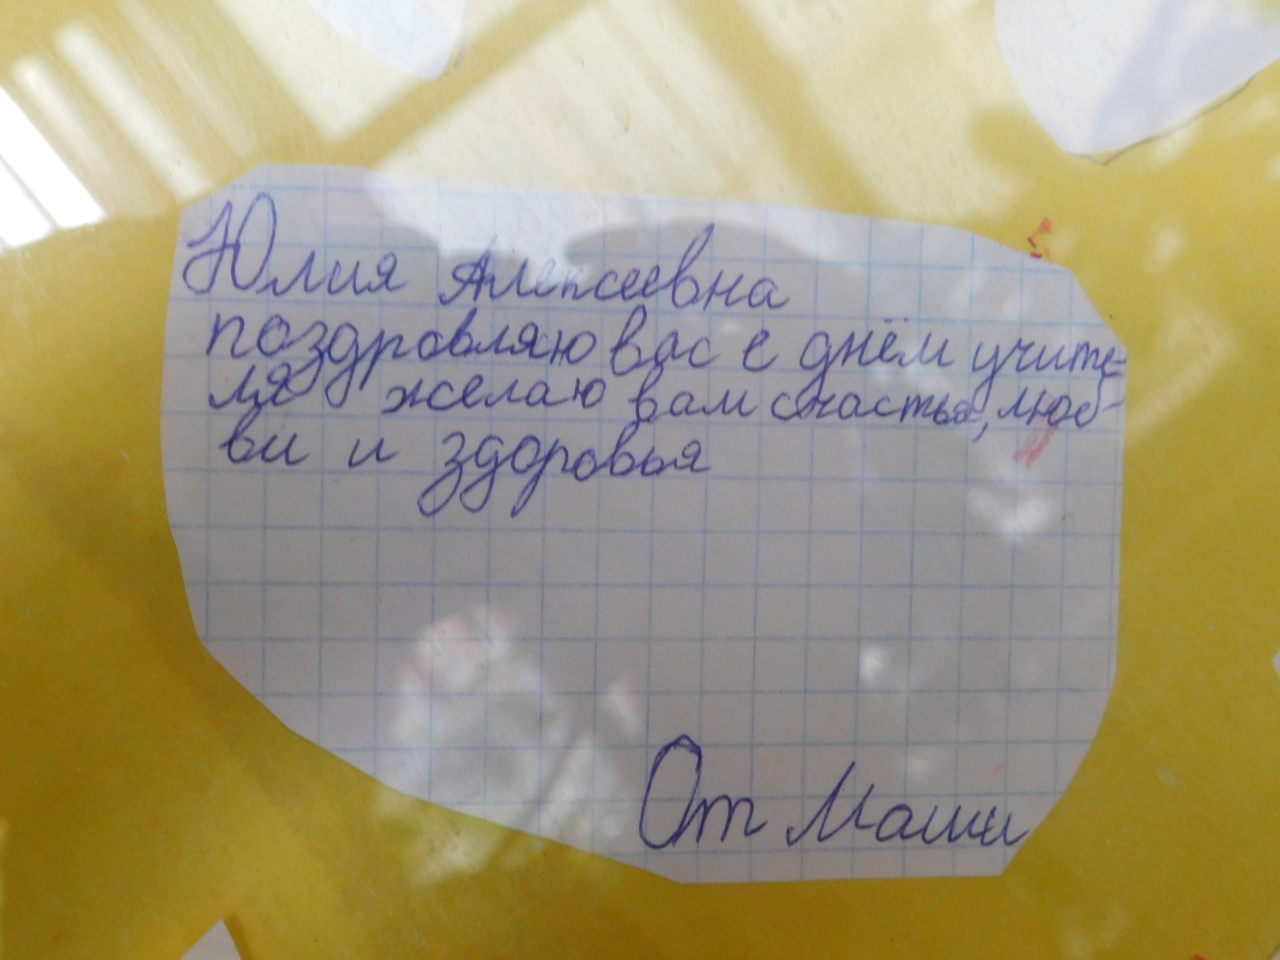 Юлия Алексеевна
поздровляю вас с днём учите-
ля желаю вам счастья, люб-
ви и здоровья
От Маши